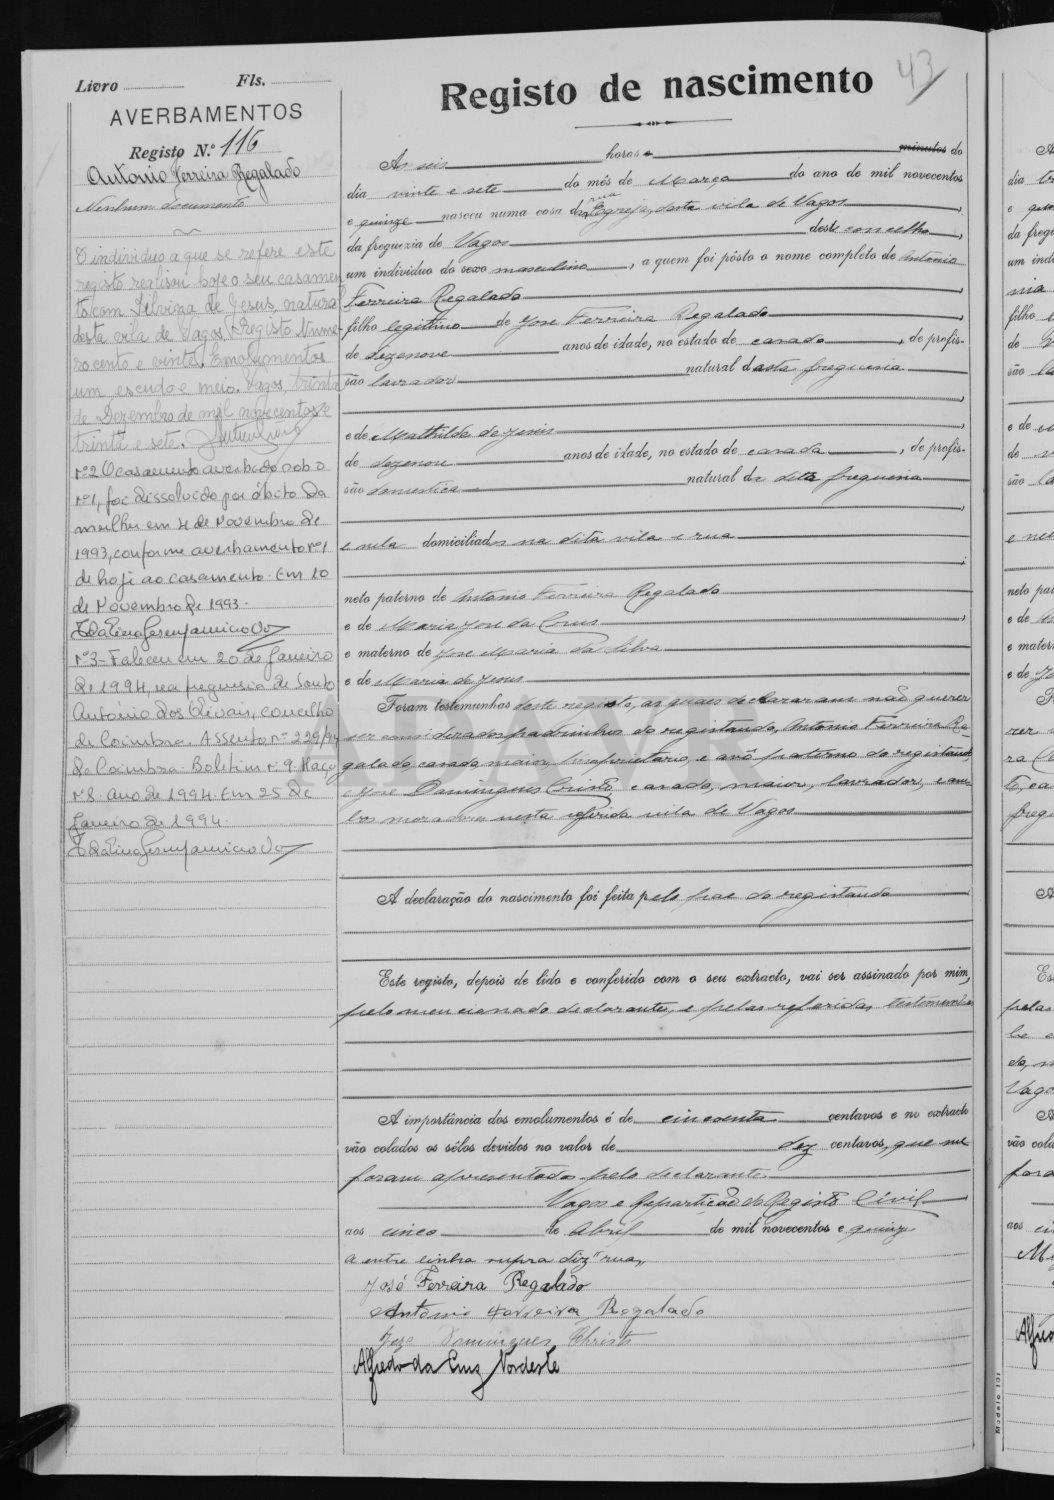 Livro Fls.
AVERBAMENTOS
Registo N.º 116
Antonio Ferreira Regalado
Nenhum documento
O individuo a que se refere este
registo realisou hoje o seu casamen
to com Silvina de Jesus, natural
desta vila de Vagos. Registo Nume-
ro cento e vinte. Emolumentos
um escudo e meio. Vagos, trinta
de Dezembro de mil novecentos e
trinta e sete.
Nº2 O casamento averbado sob o
nº1, foi dissolvido por óbito da
mulher em 4 de Novembro de
1993, conforme averbamento nº1
de hoje ao casamento. Em 10
de Novembro de 1993.
Nº3- Faleceu em 20 de Janeiro
de 1994, na freguesia de Santo
António dos Olivais, concelho
de Coimbra. Assento nº 229/94
de Coimbra. Boletim nº 9. Maço
nº8. Ano de 1994. Em 25 de
Janeiro de 1994.
43
Registo de nascimento
As seis horas e minutos do
dia vinte e sete do mês de Março do ano de mil novecentos
rua
e quinze nasceu numa casa da Egreja, desta vila de Vagos
da freguezia de Vagos deste concelho,
um individuo do sexo masculino, a quem foi pôsto o nome completo de Antonio
Ferreira Regalado
filho legitimo de Jose Ferreira Regalado
de dezenove anos de idade, no estado de casado, de profis-
são lavrador natural desta freguesia
e de Mathilde de Jesus
de dezenove anos de idade, no estado de casada, de profis-
são domestica natural da dita freguesia
e nela domiciliados na dita vila e rua
neto paterno de Antonio Ferreira Regalado
e de Maria Jose da Cruz
e materno de Jose Maria da Silva
e de Maria de Jesus
Foram testemunhas deste registo, as quaes declararam não querer
ser considerados padrinhos do registando, Antonio Ferreira Re-
galado, casado, maior, proprietario, e avô paterno do registando,
e Jose Domingues Cristo, casado, maior, lavrador, e am-
bos moradores nesta referida vila de Vagos
A declaração do nascimento foi feita pelo pae do registando
Este registo, depois de lido e conferido com o seu extracto, vai ser assinado por mim,
pelo mencionado declarante, e pelas referidas testemunhas
A importância dos emolumentos é de cincoenta centavos e no extracto
vão colados os sêlos devidos no valor de dez centavos, que me
foram apresentados pelo declarante.
Vagos e Repartição do Registo Civil
aos cinco de Abril de mil novecentos e quinze
A entre linha supra diz "rua"
José Ferreira Regalado
Antonio Ferreira Regalado
Jose Domingues Christo
Alfredo da Cruz Nordeste
ADAVR
Modelo 101